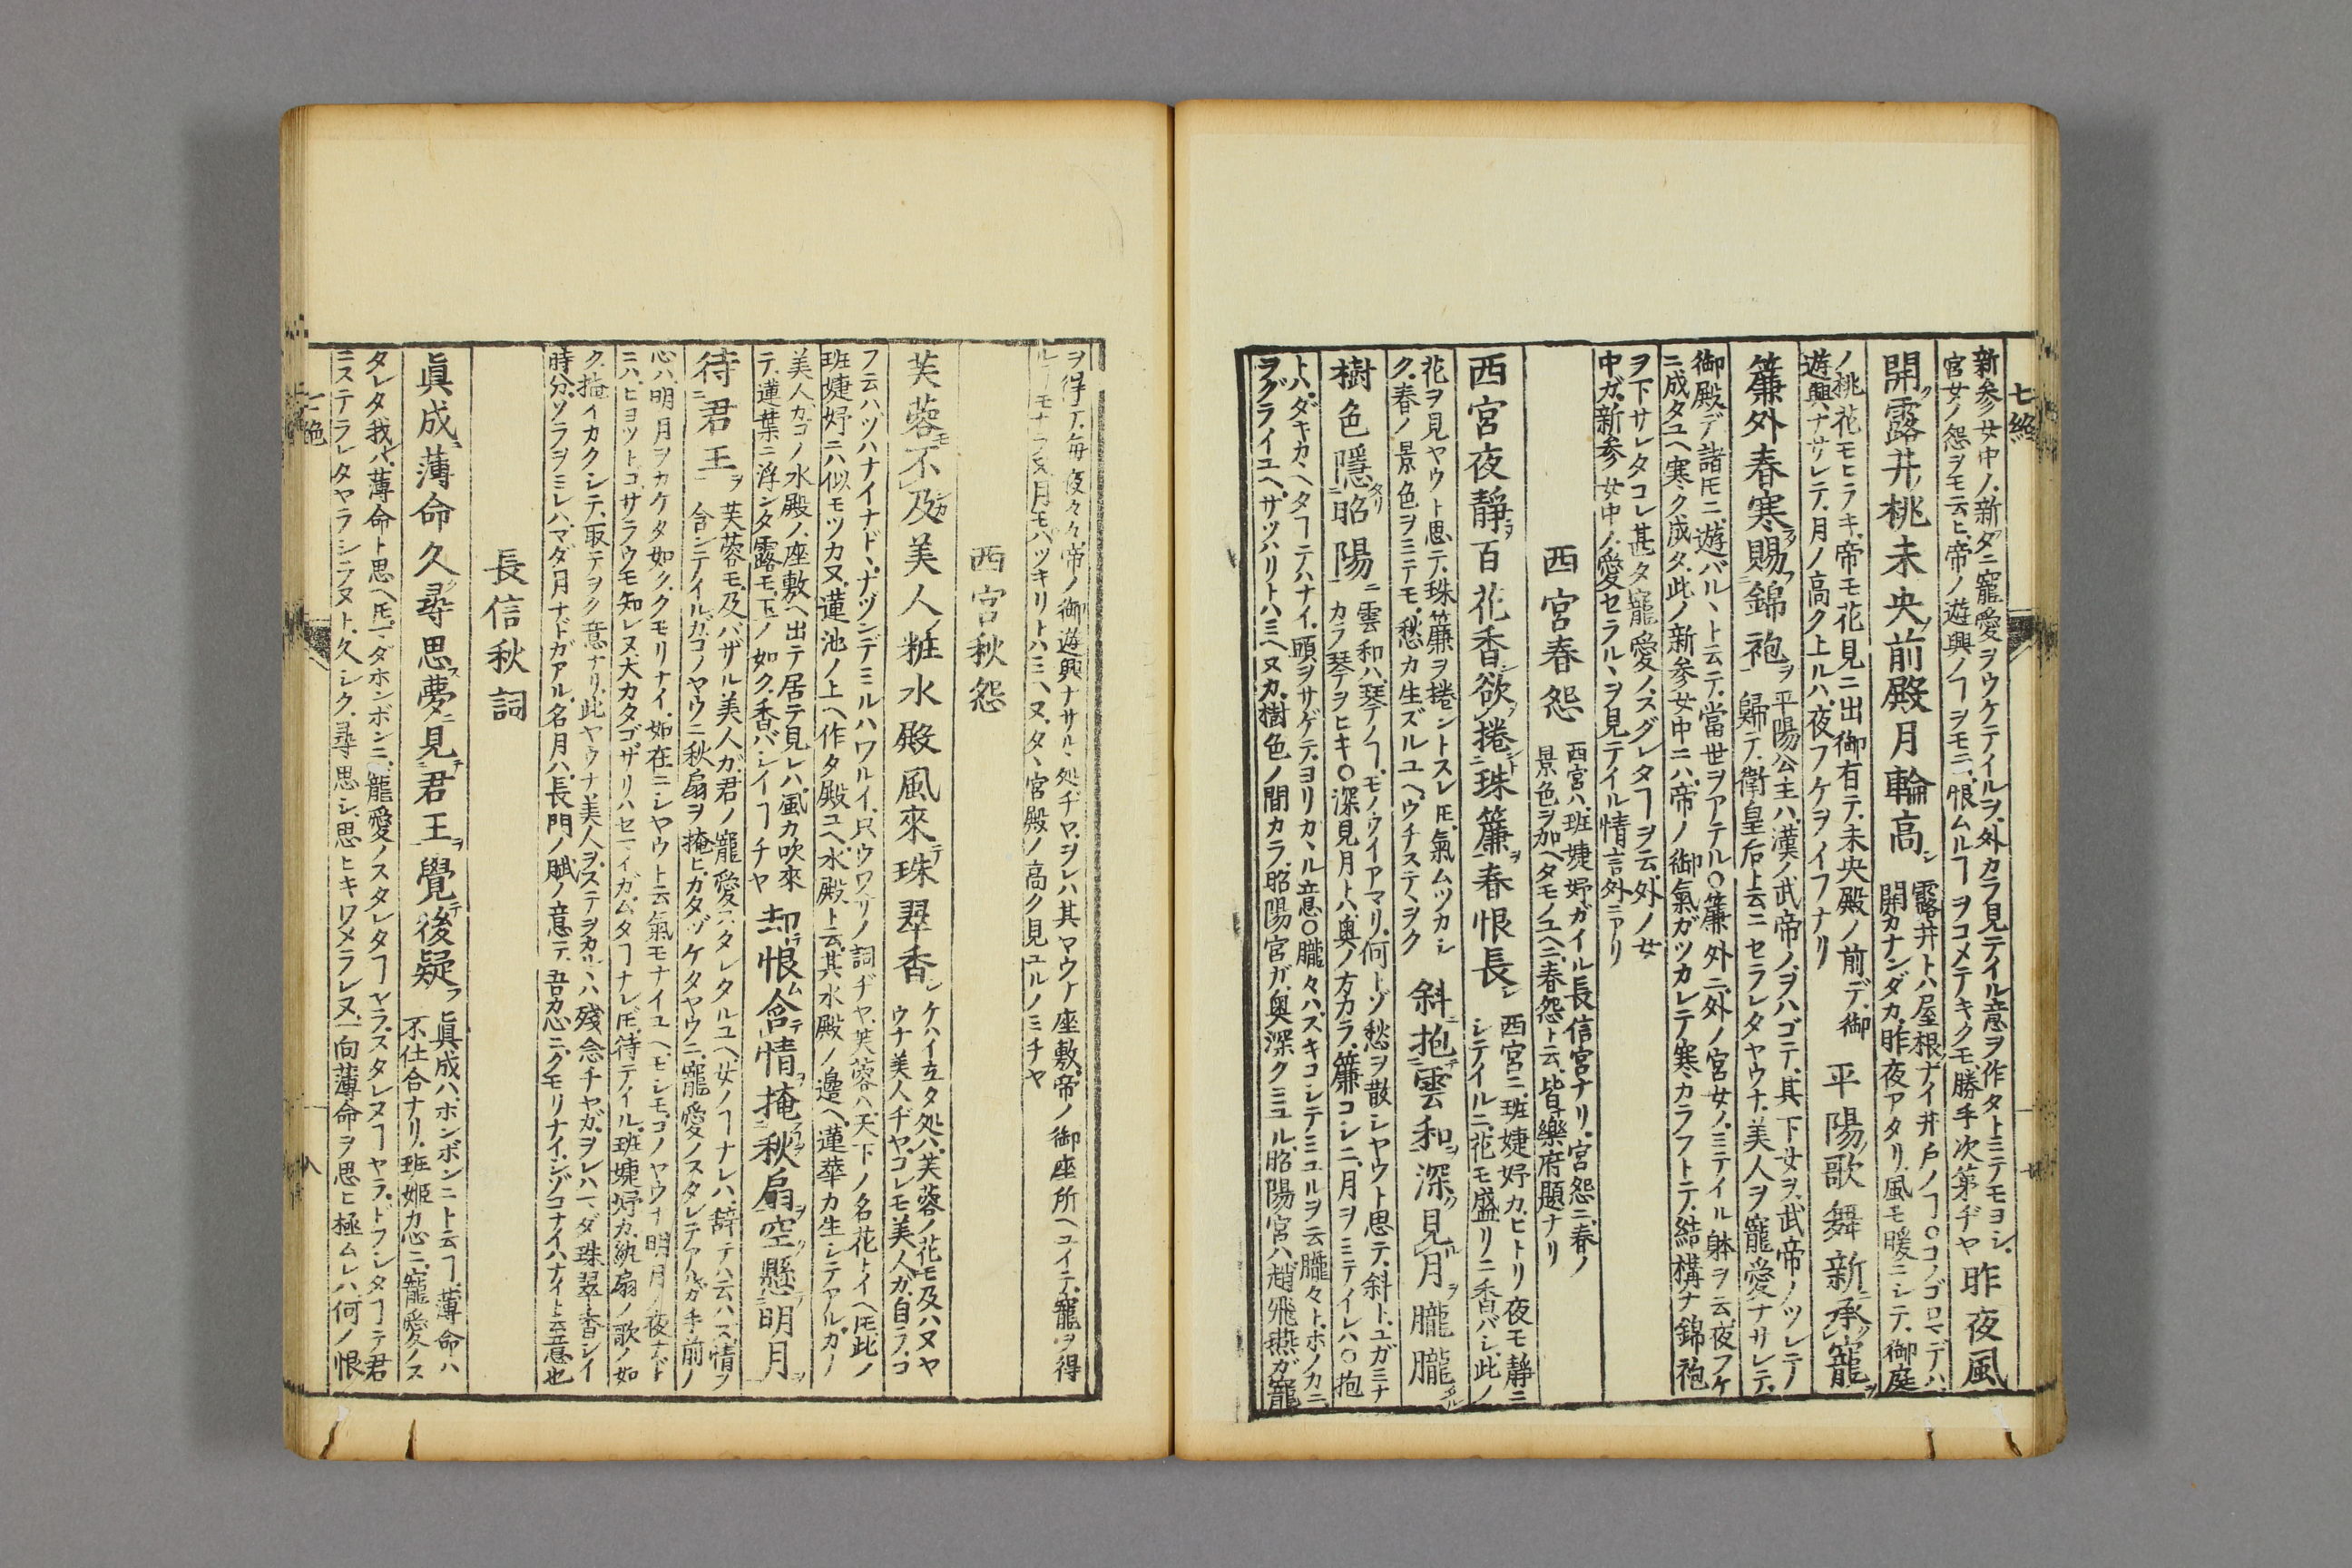 七絶
新参女中ノ、新タニ寵愛ヲウケテイルヲ、外カラ見テイル意ヲ作タトミテモヨシ、
宮女ノ怨ヲモ云ヒ、帝ノ遊興ノヿヲモニ、恨ムルヿヲコメテキクモ、勝手次第ヂヤ
昨夜風
開露井桃未央前殿月輪高
露井トハ、屋根ナイ井戸ノヿ○コノゴロマデハ、
開カナンダカ、昨夜アタリ、風モ暖ニシテ、御庭
ノ桃花モヒラキ、帝モ花見ニ出御有テ、未央殿ノ前デ、御
遊興ナサレテ、月ノ高ク上ルハ、夜フケヲイフナリ
平陽歌舞新承寵
簾外春寒賜錦袍
平陽公主ハ、漢ノ武帝ノ、ヲハゴテ、其下女ヲ、武帝ノツレテノ
歸テ、衛皇后ト云ニセラレタヤウナ、美人ヲ寵愛ナサレテ、
御殿デ諸氏ニ、遊バルヽト云テ、當世ヲアテル○簾外ニ、外ノ宮女ノ、ミテイル躰ヲ云、夜フケ
ニ成タユヘ寒ク成タ、此ノ新参女中ニハ、帝ノ御氣ガツカレテ、寒カラフトテ、結構ナ錦袍
ヲ下サレタコレ甚タ寵愛ノ、スグレタヿヲ云、外ノ女
中ガ、新参女中ノ、愛セラルヽヲ見テイル情、言外ニアリ
西宮春怨
西宮ハ、班婕妤ガイル長信宮ナリ、宮怨ニ、春ノ
景色ヲ加ヘタモノユヘニ、春怨ト云、皆樂府題ナリ
西宮夜靜百花香欲捲珠簾春恨長
西宮ニ、班婕妤カヒトリ夜モ静ニ
シテイルニ、花モ盛リニ香バシ、此ノ
花ヲ見ヤウト思テ、珠簾ヲ捲ントスレ𪜈、氣ムツカシ
ク、春ノ景色ヲミテモ、愁カ生ズルユヘ、ウチステヽヲク
斜抱雲和深見月朧朧
樹色隱昭陽
雲和ハ、琴ノヿ、モノウイアマリ、何トゾ愁ヲ散シヤウト思テ、斜ト、ユガミナ
カラ琴ヲヒキ○深見月ト、奥ノ方カラ、簾コシニ、月ヲミテイレハ○抱
トハ、ダキカヽヘタヿテハナイ、頭ヲサゲテ、ヨリカヽル意○朧々ハ、ズキコシテミユルヲ云、朧々ト、ホノカニ、
ヲグライユヘ、サツハリトハミヘヌカ、樹色ノ間カラ、昭陽宮ガ、奥深クミユル、昭陽宮ハ、趙飛燕ガ寵
ヲ得テ、毎夜々々帝ノ御遊興ナサルヽ処ヂヤ、ヲレハ其マウケ座敷、帝ノ御座所ヘユイテ、寵ヲ得
ルヿモナラヌ、月モハツキリトハミヘヌ、タヽ宮殿ノ高ク見ユルノミチヤ
西宮秋怨
芙蓉不及美人粧水殿風來珠翠香
ケハイ立タ処ハ、芙蓉ノ花モ及ハヌヤ
ウナ美人ヂヤ、コレモ美人ガ、自ラコ
フ云ハヅハナイナド、ナヅンデミルハワルイ、只ウワサノ詞ヂヤ、芙蓉ハ、天下ノ名花トイヘ𪜈、此ノ
班婕妤ニハ似モツカヌ、蓮池ノ上ヘ作タ殿ユヘ、水殿ト云、其水殿ノ邊ヘ、蓮華カ生シテアルカ、ノ
美人カ、コノ水殿ノ、座敷ヘ出テ居テ見レハ、風カ吹來
テ、蓮葉ニ浮ンタ露モ、玉ノ如ク、香バシイヿチヤ
却恨含情掩秋扇空懸明月
待君王
芙蓉モ、及バザル美人カ、君ノ寵愛ニ、スタレタルユヘ、女ノヿナレハ、辞テハ云ハズ、情ヲ
含ンテイルガ、コノヤウニ秋扇ヲ掩ヒ、カタヅケタヤウニ、寵愛ノスタレテアルガ、手前ノ
心ハ、明月ヲカケタ如ク、クモリナイ、如在ニシヤウト云氣モナイユヘ、モシモコノヤウナ明月ノ夜ナド
ニハ、ヒヨツト、コザラウモ知レヌ、大カタゴザリハセマイガ、ムタヿナレ𪜈、待テイル、班婕妤カ、紈扇ノ歌ノ如
ク、掩イカクシテ、取テヲク意ナリ、此ヤウナ美人ヲ、ステヲカルヽハ、残念チヤガ、ヲレハ、マダ珠翠香シイ
時分、ソラヲミレハ、マダ月ナドガアル、名月ハ、長門ノ賦ノ意テ、吾カ心ニ、クモリナイ、ジゾコナイハナイト云意也
長信秋詞
眞成薄命久尋思夢見君王覺後疑
眞成ハ、ホンボンニト云ヿ、薄命ハ
不仕合ナリ、班姫カ心ニ、寵愛ノス
タレタ我ハ、薄命ト思ヘ𪜈、マダホンボンニ、寵愛ノスタレタヿヤラ、スタレヌヿヤラ、ドフシタヿテ君
ニステラレタヤラ、シラヌト、久シク、尋思シ、思ヒキワメラレヌ、一向薄命ヲ思ヒ極ムレハ、何ノ恨
七絶
八